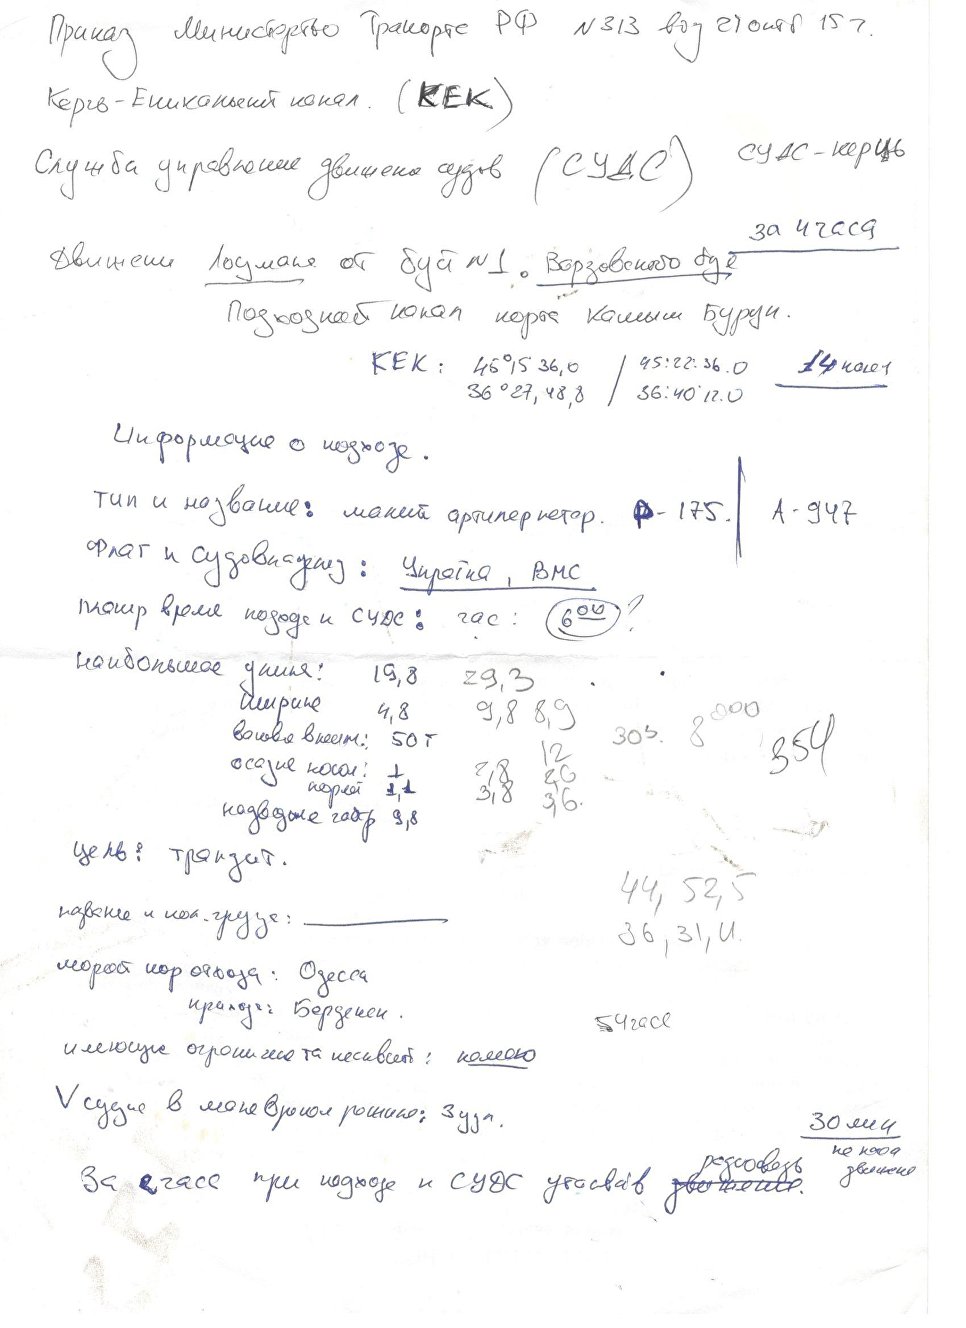 Приказ Министерство Транспорте РФ N313 вод 21 октб 15 г.
Керчь-Еникальский канал. (КЕК)
Служба управление движение судов (СУДС) СУДС-керчь
за 4 часа
Движени Лоцмана от буй №1. Варзовского буе
Подходной канал порта Камыш Бурун.
КЕК: 45°15 36,0 / 45:22:36.0 14 канал
36°27,48,8 / 36:40:12.0
Информацие о подходе.
тип и название: малий артилер катер. Р-175. | А-947
Флаг и Судовладелец: Україна, ВМС
планир время подода к СУДС: час: 6 00 ?
наибольшае длина: 19,8 29,3
ширина 4,8 9,8 8,9
50 т 12 303. 8 000 354
осадке носом: 1 2,8 2,6
кормой 1,1 3,8 3,6.
надводные габр 9,8
цель: транзит.
44, 52,5
название и кол. груза: ———
36, 31,
порт отхода: Одесса
прихода: Бердянск.
5 4 часа
имеющие ограничения: немаю
V судне в маневреном режиме: 3 узл.
30 мин
не начал движение
За 2 часа при подходе к СУДС радиосвязь движение.